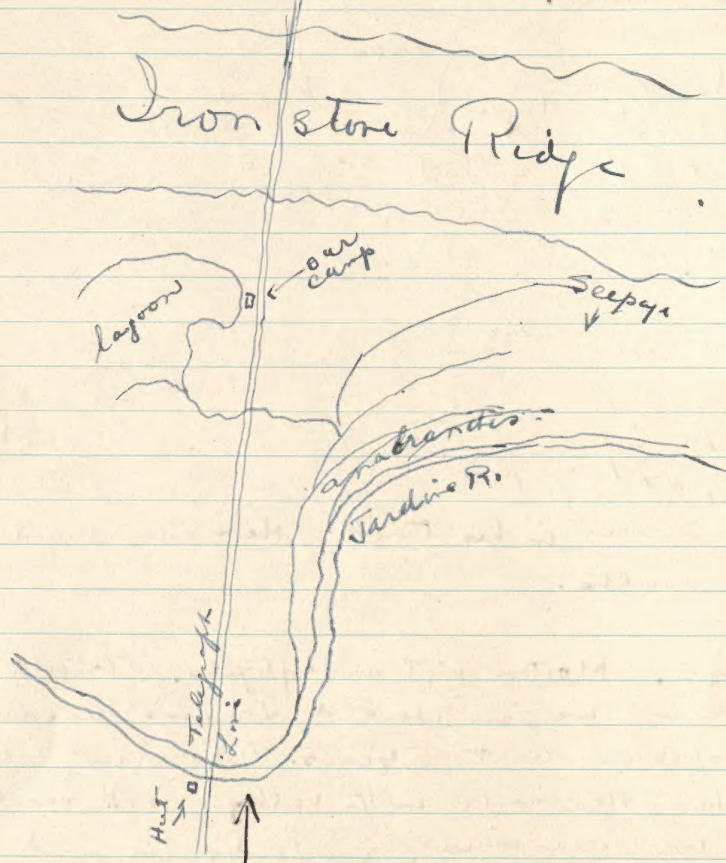 Iron stone Ridge
our
camp
lagoon
Seepage
anabranches
Jardine R.
Telegraph
Line
Hut